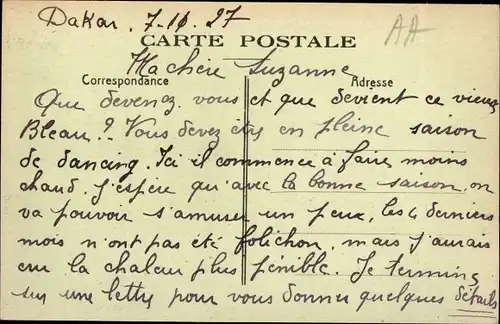 Dakar. 7-10.27
AA
CARTE POSTALE
Ma chère Suzanne
Correspondance
Adresse
Que devenez-vous et que devient ce vieux
Bleau? Vous devez être en pleine saison
de dancing. Ici il commence à faire moins
chaud. J'espère qu'avec la bonne saison, on
va pouvoir s'amuser un peu, les 4 derniers
mois n'ont pas été folichon, mais j'aurais
cru la chaleur plus pénible. Je termine
sur une lettre pour vous donner quelques détails